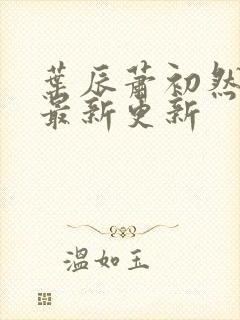 葉辰蕭初然
最新更新
溫如玉